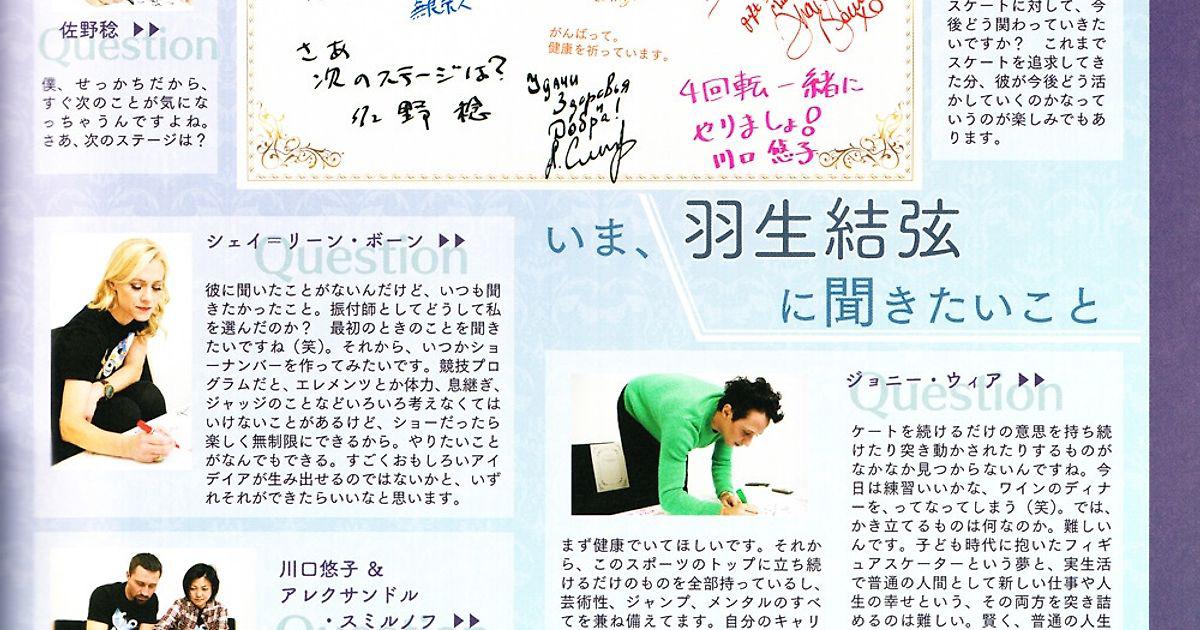 佐野稔 ▶▶
Question
僕、せっかちだから、
すぐ次のことが気にな
っちゃうんですよね。
さあ、次のステージは？
さあ
次のステージは？
佐野 稔
がんばって。
健康を祈っています。
Удачи
Здоровья
Добра!
4回転一緒に
やりましょ!
川口 悠子
スケートに対して、今
後どう関わっていきた
いですか？　これまで
スケートを追求してき
た分、彼が今後どう活
かしていくのかなって
いうのが楽しみでもあ
ります。
いま、羽生結弦
に聞きたいこと
シェイ＝リーン・ボーン ▶▶
Question
彼に聞いたことがないんだけど、いつも聞
きたかったこと。振付師としてどうして私
を選んだのか？　最初のときのことを聞き
たいですね（笑）。それから、いつかショ
ーナンバーを作ってみたいです。競技プロ
グラムだと、エレメンツとか体力、息継ぎ、
ジャッジのことなどいろいろ考えなくては
いけないことがあるけど、ショーだったら
楽しく無制限にできるから。やりたいこと
がなんでもできる。すごくおもしろいアイ
デイアが生み出せるのではないかと、いず
れそれができたらいいなと思います。
川口悠子 &
アレクサンドル
・スミルノフ ▶▶
ジョニー・ウィア ▶▶
Question
まず健康でいてほしいです。それか
ら、このスポーツのトップに立ち続
けるだけのものを全部持っているし、
芸術性、ジャンプ、メンタルのすべ
てを兼ね備えてます。自分のキャリ
ケートを続けるだけの意思を持ち続
けたり突き動かされたりするものが
なかなか見つからないんですね。今
日は練習いいかな、ワインのディナ
ーを、ってなってしまう（笑）。では、
かき立てるものは何なのか。難しい
んです。子ども時代に抱いたフィギ
ュアスケーターという夢と、実生活
で普通の人間として新しい仕事や人
生の幸せという、その両方を突き詰
めるのは難しい。賢く、普通の人生